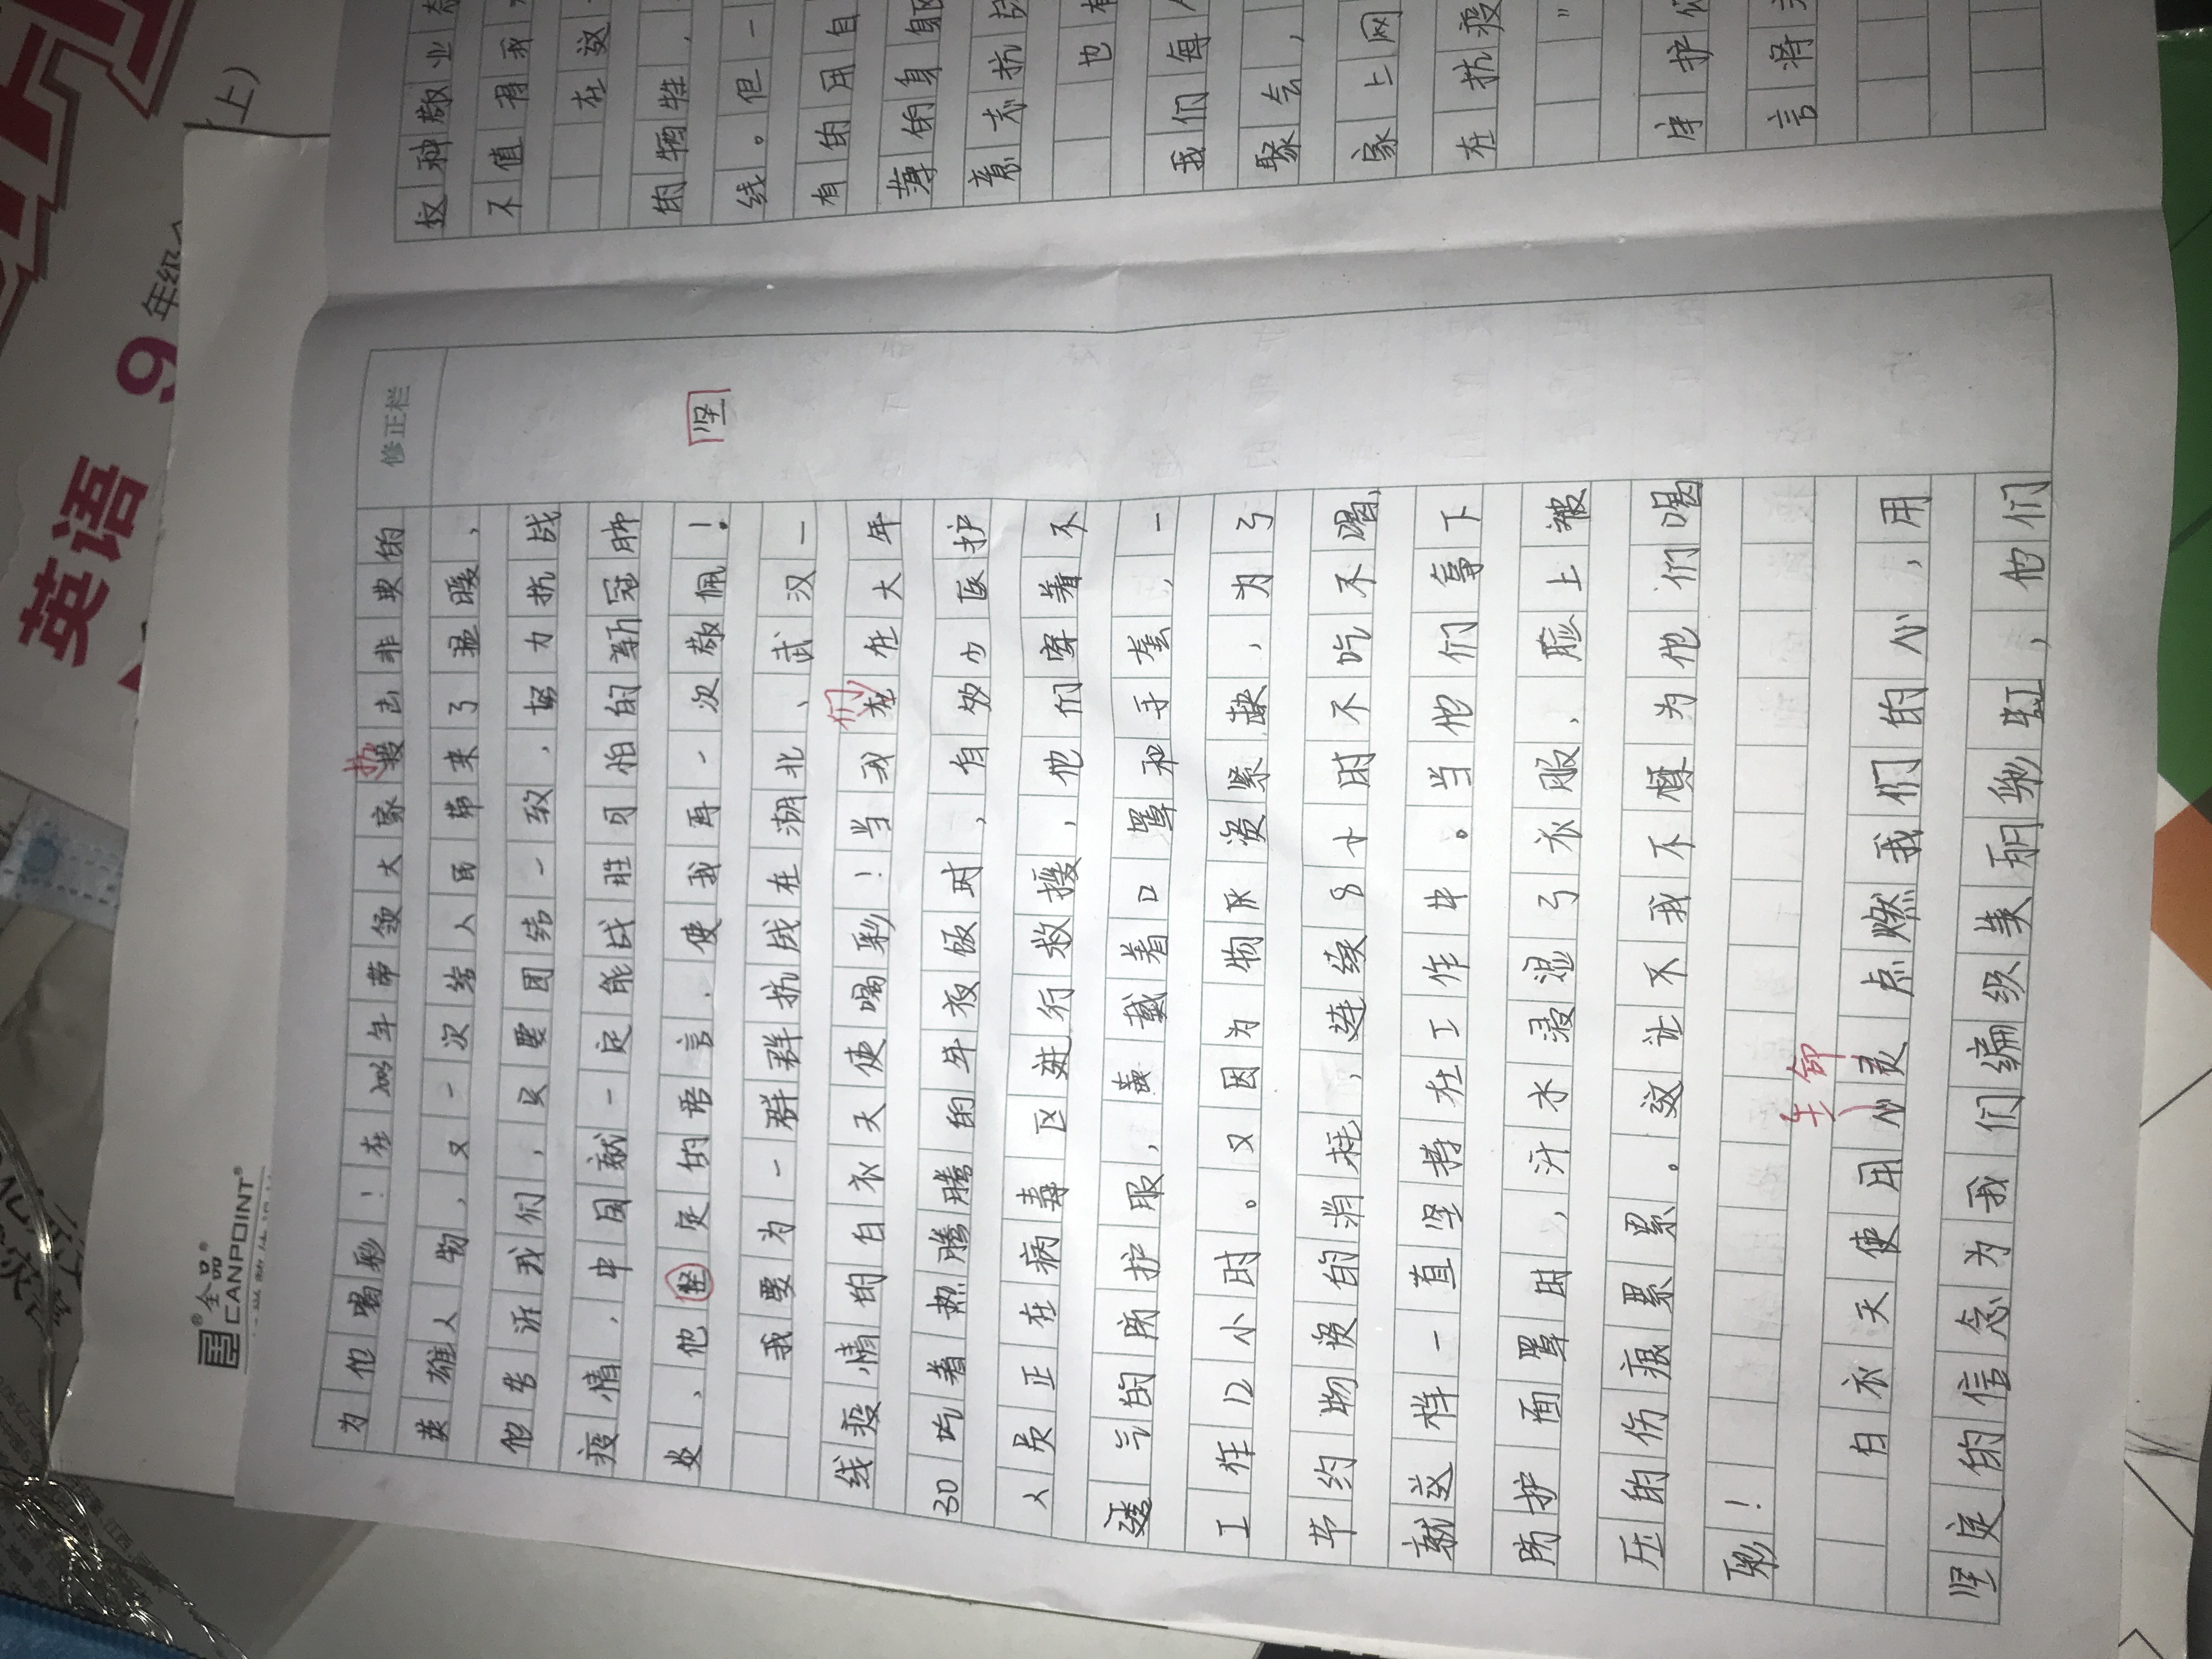 修正栏
为他喝彩！在2003年带领大家抗击非典的
英雄人物，又一次给人民带来了温暖，
他告诉我们，只要团结一致，努力抗战
疫情，中国就一定能战胜可怕的新冠肺
炎，他坚定的语言，使我再一次敬佩！
坚
我要为一群群抗战在湖北、武汉一
线疫情的白衣天使喝彩！当我们在大年
30吃着热腾腾的年夜饭时，有多少医护
人员正在病毒区进行救援，他们穿着不
透气的防护服，戴着口罩和手套，一
工作12小时。又因为物质资紧缺，为了
节约物资的消耗，连续8小时不吃不喝，
就这样一直坚持在工作中。当他们事下
防护面罩时，汗水浸湿了衣服，脸上被
压的伤痕累累。这让不我不惧为他们喝
彩！
生命
白衣天使用心灵点燃我们的心，用
坚定的信念为我们编织美丽彩虹，他们
这种敬业
不值得我
在这
的牺牲，
线。但一
有的用自
薄的身躯
意志抗
也有
我们每
聚会，
家上网
在抗疫
"
序护
言将
英语 9年级
(上)
全品
CANPOINT